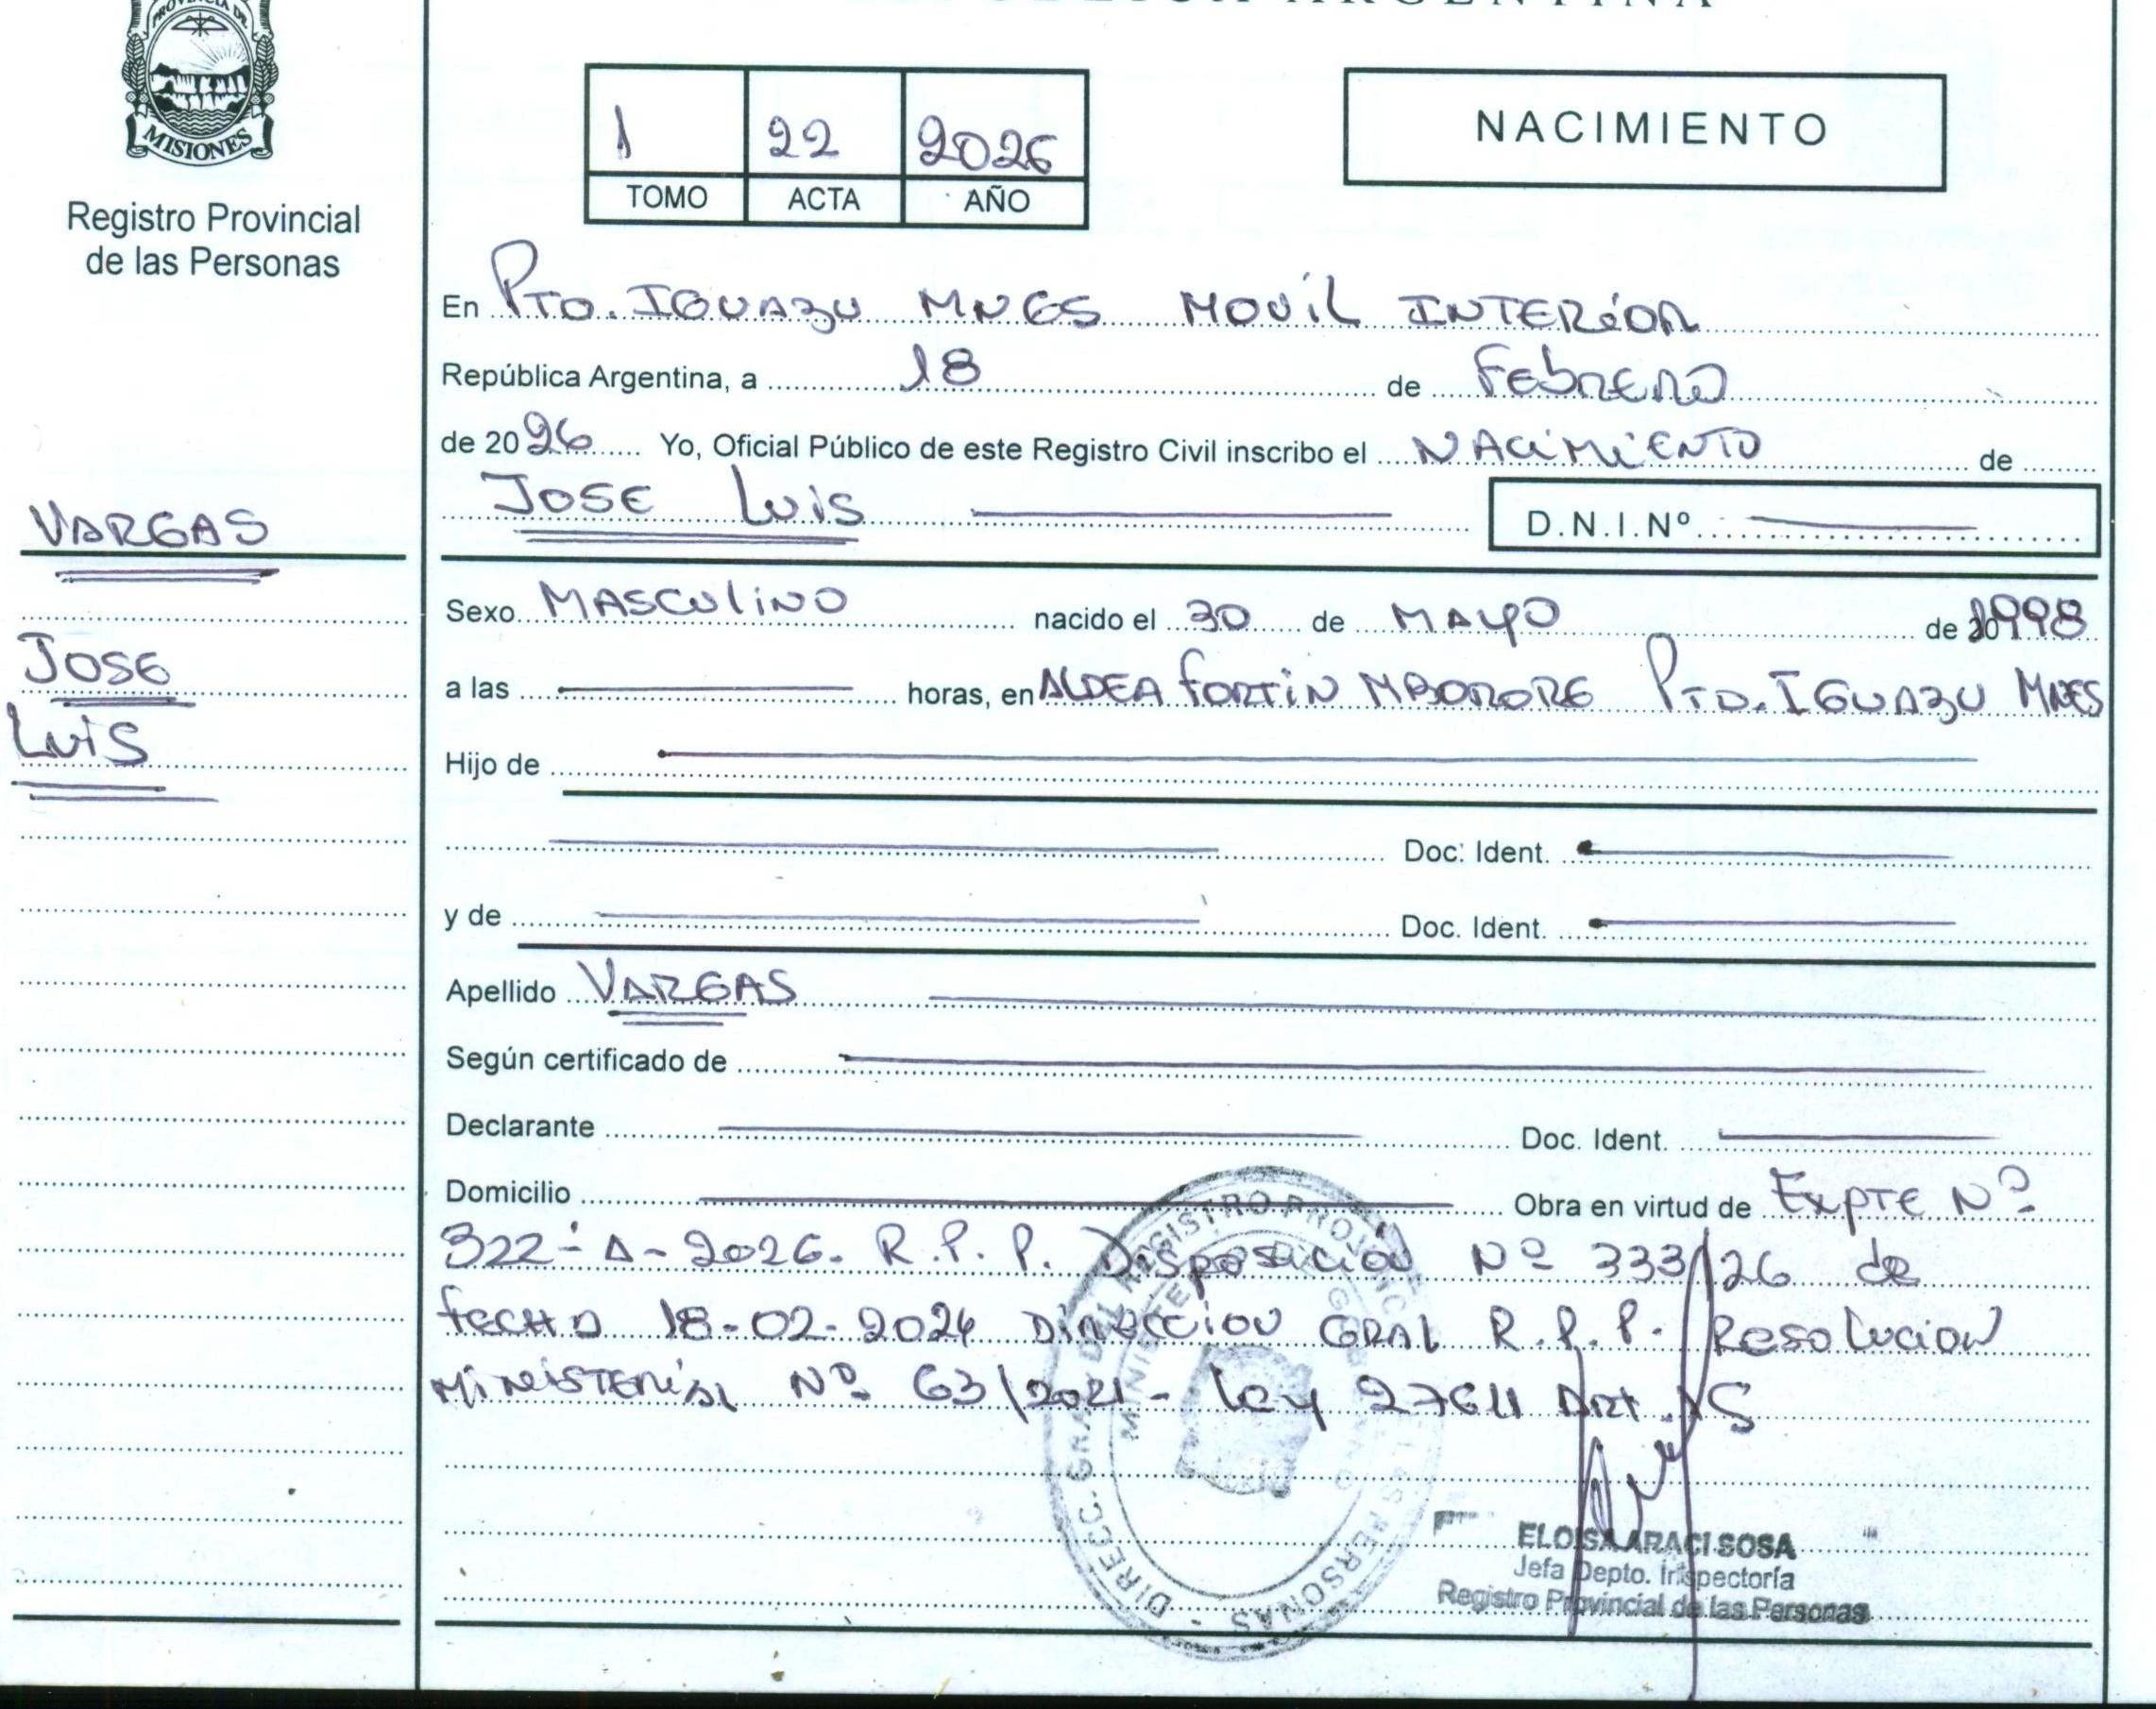 PROVINCIA DE
MISIONES
Registro Provincial
de las Personas
REPUBLICA ARGENTINA
1 22 2026
TOMO ACTA AÑO
NACIMIENTO
En PTO. IGUAZU MNES MOVIL INTERIOR
República Argentina, a 18 de FEBRERO
de 2026 Yo, Oficial Público de este Registro Civil inscribo el NACIMIENTO de
JOSE LUIS D.N.I.Nº
VARGAS
JOSE
LUIS
Sexo MASCULINO nacido el 30 de MAYO de 1998
a las horas, en ALDEA FORTIN MBORORE PTO. IGUAZU MNES
Hijo de
Doc. Ident.
y de Doc. Ident.
Apellido VARGAS
Según certificado de
Declarante Doc. Ident.
Domicilio Obra en virtud de EXPTE Nº
322-A-2026. R.P.P. Disposición Nº 333/26 de
FECHA 18-02-2026 DIRECCION GRAL R.P.P. Resolucion
MINISTERIAL Nº 63/2021 - Ley 27611 ART.
ELOISA ARACI SOSA
Jefa Depto. Inspectoría
Registro Provincial de las Personas
DIRECC. GRAL DEL REGISTRO PROVINCIAL DE LAS PERSONAS